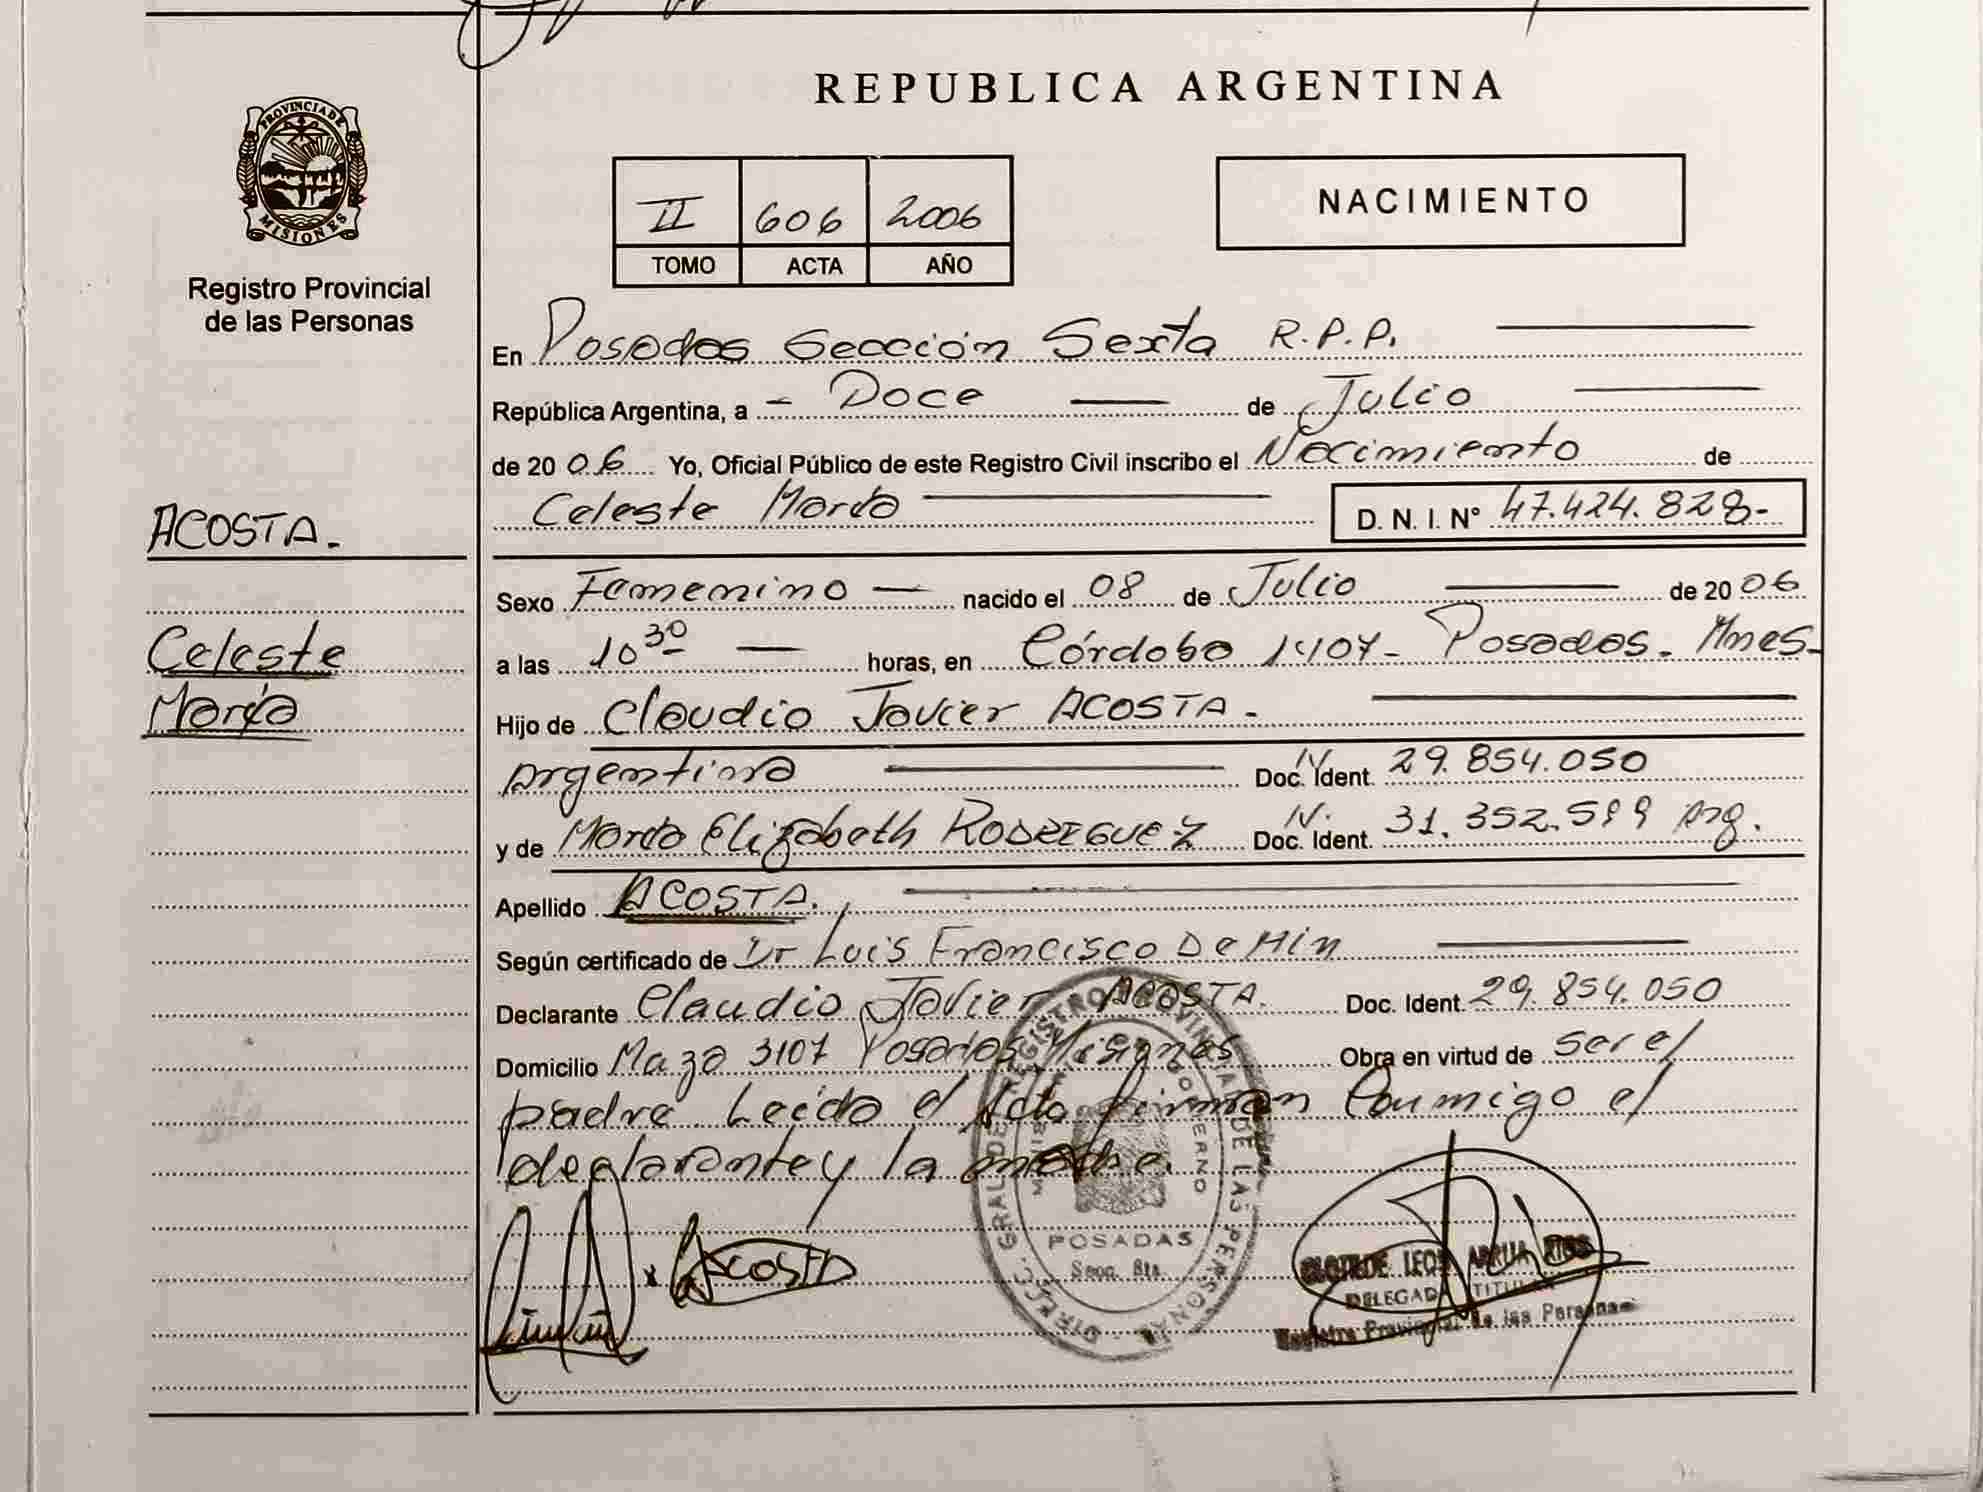 REPUBLICA ARGENTINA
PROVINCIA DE
MISIONES
Registro Provincial
de las Personas
II 606 2006
TOMO ACTA AÑO
NACIMIENTO
En Posadas Sección Sexta R.P.P.
República Argentina, a - Doce de Julio
de 2006 Yo, Oficial Público de este Registro Civil inscribo el Nacimiento de
Celeste María D. N. I. N° 47.424.828-
ACOSTA.-
Celeste
María
Sexo Femenino nacido el 08 de Julio de 2006
a las 10 30 horas, en Córdoba 1407- Posadas. Mnes-
Hijo de Claudio Javier ACOSTA-
argentino Doc. Ident. N 29.854.050
y de María Elizabeth RODRIGUEZ Doc. Ident. N. 31.352.599 Arg.
Apellido ACOSTA.
Según certificado de Dr Luis Francisco DeMin
Declarante Claudio Javier ACOSTA. Doc. Ident 29.854.050
Domicilio Maza 3107 Posadas Misiones Obra en virtud de ser el
padre. Leída el Acta firman Conmigo el
declarante y la madre.
ACOSTA
DIRECC. GRAL. DE REGISTRO PROVINCIAL DE LAS PERSONAS
GOBIERNO
POSADAS
Secc. 6ta.
CLOTILDE LEON ABRUA RIOS
DELEGADA TITULAR
Registro Provincial de las Personas